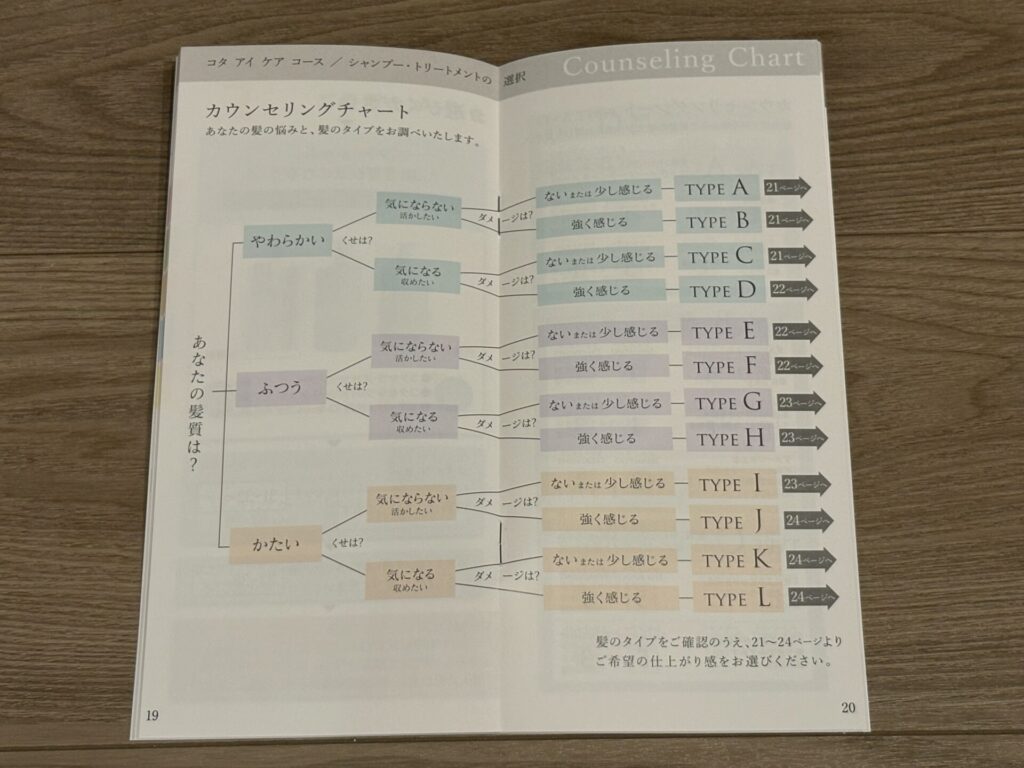 コタ アイ ケア コース ／ シャンプー・トリートメントの 選択
Counseling Chart
カウンセリングチャート
あなたの髪の悩みと、髪のタイプをお調べいたします。
あなたの髪質は?
やわらかい
くせは?
気にならない
活かしたい
ダメージは?
ないまたは少し感じる
TYPE A
21ページへ
強く感じる
TYPE B
21ページへ
気になる
収めたい
ダメージは?
ないまたは少し感じる
TYPE C
21ページへ
強く感じる
TYPE D
22ページへ
ふつう
くせは?
気にならない
活かしたい
ダメージは?
ないまたは少し感じる
TYPE E
22ページへ
強く感じる
TYPE F
22ページへ
気になる
収めたい
ダメージは?
ないまたは少し感じる
TYPE G
23ページへ
強く感じる
TYPE H
23ページへ
かたい
くせは?
気にならない
活かしたい
ダメージは?
ないまたは少し感じる
TYPE I
23ページへ
強く感じる
TYPE J
24ページへ
気になる
収めたい
ダメージは?
ないまたは少し感じる
TYPE K
24ページへ
強く感じる
TYPE L
24ページへ
髪のタイプをご確認のうえ、21〜24ページより
ご希望の仕上がり感をお選びください。
19
20